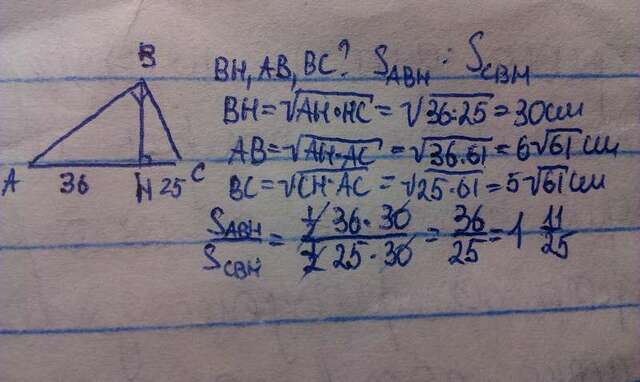 B
A 36 H 25 C
BH, AB, BC? S_ABH : S_CBH
BH = √AH·HC = √36·25 = 30 см
AB = √AH·AC = √36·61 = 6√61 см
BC = √CH·AC = √25·61 = 5√61 см
S_ABH / S_CBH = (1/2 36·30) / (1/2 25·30) = 36/25 = 1 11/25